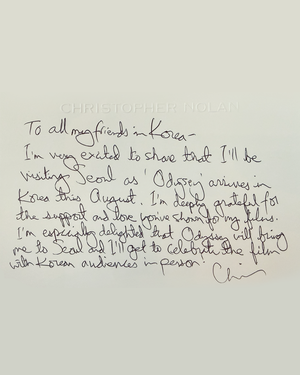 CHRISTOPHER NOLAN
To all my friends in Korea-
I'm very excited to share that I'll be
visiting Seoul as 'Odyssey' arrives in
Korea this August. I'm deeply grateful for
the support and love you've shown for my films.
I'm especially delighted that Odyssey will bring
me to Seoul and I'll get to celebrate the film
with Korean audiences in person.
Chris